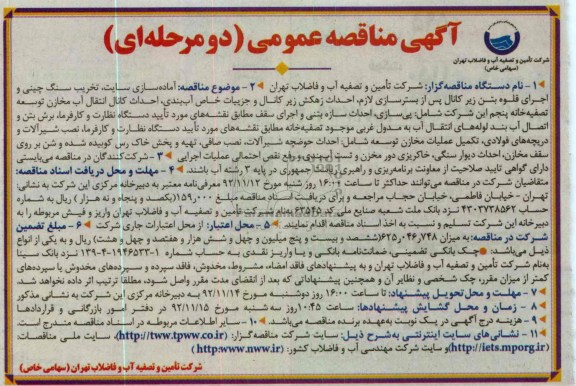 آگهی مناقصه عمومی (دو مرحله‌ای)
شرکت تأمین و تصفیه آب و فاضلاب تهران
(سهامی خاص)
۱- نام دستگاه مناقصه‌گزار: شرکت تأمین و تصفیه آب و فاضلاب تهران ۲- موضوع مناقصه: آماده‌سازی سایت، تخریب سنگ چینی و
اجرای قلوه بتن زیر کانال پس از بسترسازی لازم، احداث زهکش زیر کانال و جزییات خاص آب‌بندی، احداث کانال انتقال آب مخازن توسعه
تصفیه‌خانه پنجم این شرکت شامل: پی‌سازی، احداث سازه بتنی و اجرای سقف مطابق نقشه‌های مورد تأیید دستگاه نظارت و کارفرما، برش بتن و
اتصال آب بند لوله‌های انتقال آب به مدول غربی موجود تصفیه‌خانه مطابق نقشه‌های مورد تأیید دستگاه نظارت و کارفرما، نصب شیرآلات و
دریچه‌های فولادی، تکمیل عملیات مخازن توسعه شامل: احداث حوضچه شیرآلات، نصب صافی، تهیه و پخش خاک رس کوبیده شده و شن بر روی
سقف مخازن، احداث دیوار سنگی، خاکریزی دور مخزن و تست آب‌بندی و رفع نقص احتمالی عملیات اجرایی ۳- شرکت‌کنندگان در مناقصه می‌بایستی
دارای گواهی تایید صلاحیت از معاونت برنامه‌ریزی و راهبری ریاست جمهوری در پایه ۳ رشته آب باشند. ۴- مهلت و محل دریافت اسناد مناقصه:
متقاضیان شرکت در مناقصه می‌توانند حداکثر تا ساعت ۱۶:۰۰ روز شنبه مورخ ۹۲/۱۱/۱۲ با معرفی‌نامه معتبر به دبیرخانه مرکزی این شرکت به نشانی:
تهران - خیابان فاطمی، خیابان حجاب مراجعه و برای دریافت اسناد مناقصه مبلغ ۱۵۹٫۰۰۰ (یکصد و پنجاه و نه هزار) ریال به شماره
حساب ۴۳۰۳۷۳۸۵۶۲ نزد بانک ملت شعبه صنایع ملی کد ۶۳۵۴۵ به‌نام شرکت تأمین و تصفیه آب و فاضلاب تهران واریز و فیش مربوطه را به
دبیرخانه این شرکت تسلیم و نسبت به اخذ اسناد مناقصه اقدام نمایند. ۵- محل اعتبار: از محل اعتبارات جاری شرکت ۶- مبلغ تضمین
شرکت در مناقصه: به میزان ۶۲۵٫۰۴۶٫۷۴۸ (ششصد و بیست و پنج میلیون و چهل و شش هزار و هفتصد و چهل و هشت) ریال و به یکی از انواع
ذیل می‌باشد: چک بانکی تضمینی، ضمانت‌نامه بانکی و یا واریز نقدی به حساب شماره ۱-۱۹۴۶۵۳۳-۴-۱۳۹ نزد بانک سینا
به‌نام شرکت تأمین و تصفیه آب و فاضلاب تهران و به پیشنهادهای فاقد امضاء، مشروط، مخدوش، فاقد سپرده و سپرده‌های مخدوش یا سپرده‌های
کمتر از میزان مقرر، چک شخصی و نظایر آن و همچنین پیشنهاداتی که بعد از انقضای مدت مقرر واصل شود، مطلقا ترتیب اثر داده نخواهد شد.
۷- مهلت و محل تحویل پیشنهاد: تا ساعت ۱۶:۰۰ روز دوشنبه مورخ ۹۲/۱۱/۱۴ به دبیرخانه مرکزی این شرکت به نشانی مذکور
۸- زمان و محل گشایش پیشنهادها: ساعت ۱۰:۴۵ روز سه‌شنبه مورخ ۹۲/۱۱/۱۵ در دفتر امور بازرگانی و قراردادها
۹- هزینه درج آگهی در یک نوبت به‌عهده برنده مناقصه می‌باشد. ۱۰- سایر اطلاعات مربوطه در اسناد مناقصه مندرج است.
۱۱- نشانی‌های سایت اینترنتی به‌شرح ذیل: سایت شرکت مناقصه‌گزار: (http://tww.tpww.co.ir)، سایت ملی مناقصات:
(http://iets.mporg.ir) و سایت شرکت مهندسی آب و فاضلاب کشور: (http:www.nww.ir)
شرکت تأمین و تصفیه آب و فاضلاب تهران (سهامی خاص)